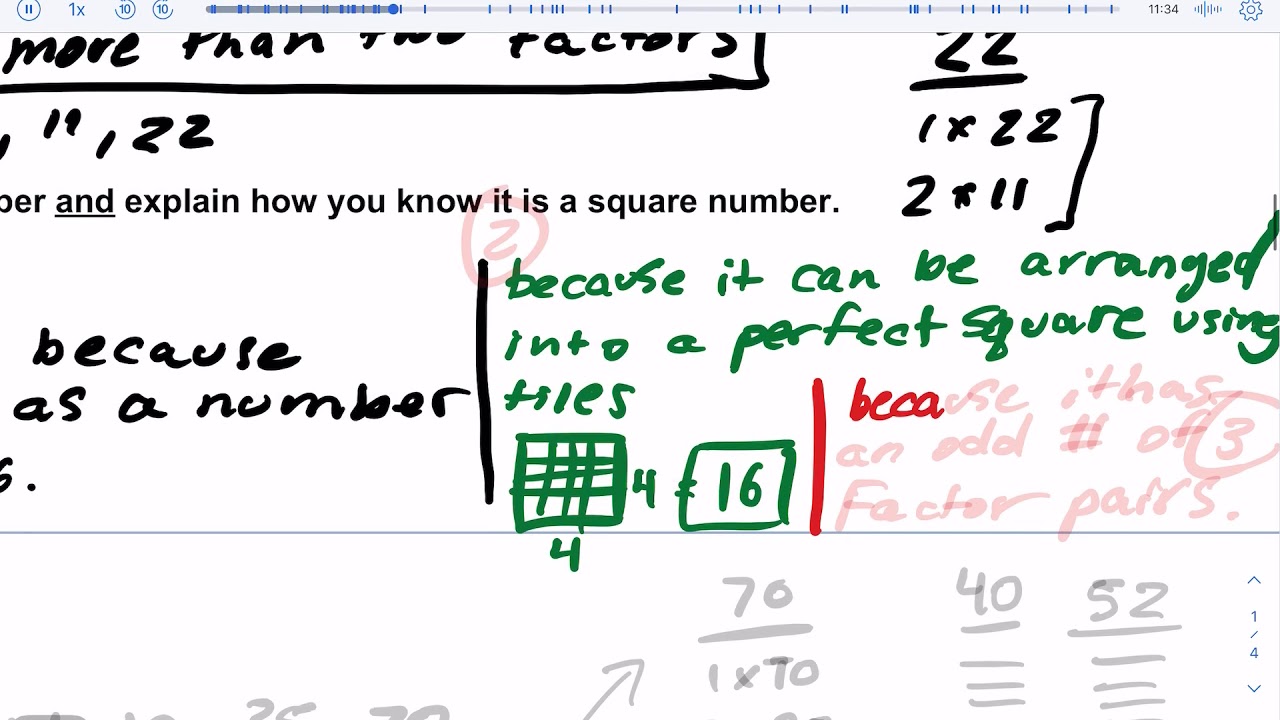 1x 10 10 11:34
more than two factors
22
, 11, 22
1 x 22
2 x 11
ber and explain how you know it is a square number.
2
because it can be arranged
into a perfect square using
tiles
because
as a number
6.
4 = 16
4
because it has
an odd # of 3
Factor pairs.
70 40 52
1 x 70
1
/
4